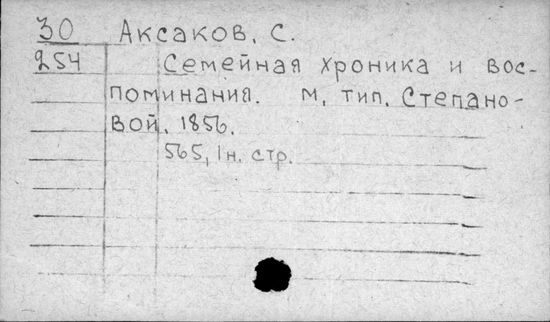 30 Аксаков, С.
254 Семейная хроника и вос-
поминания. М, тип. Степано-
вой, 1856.
565, 1н. стр.